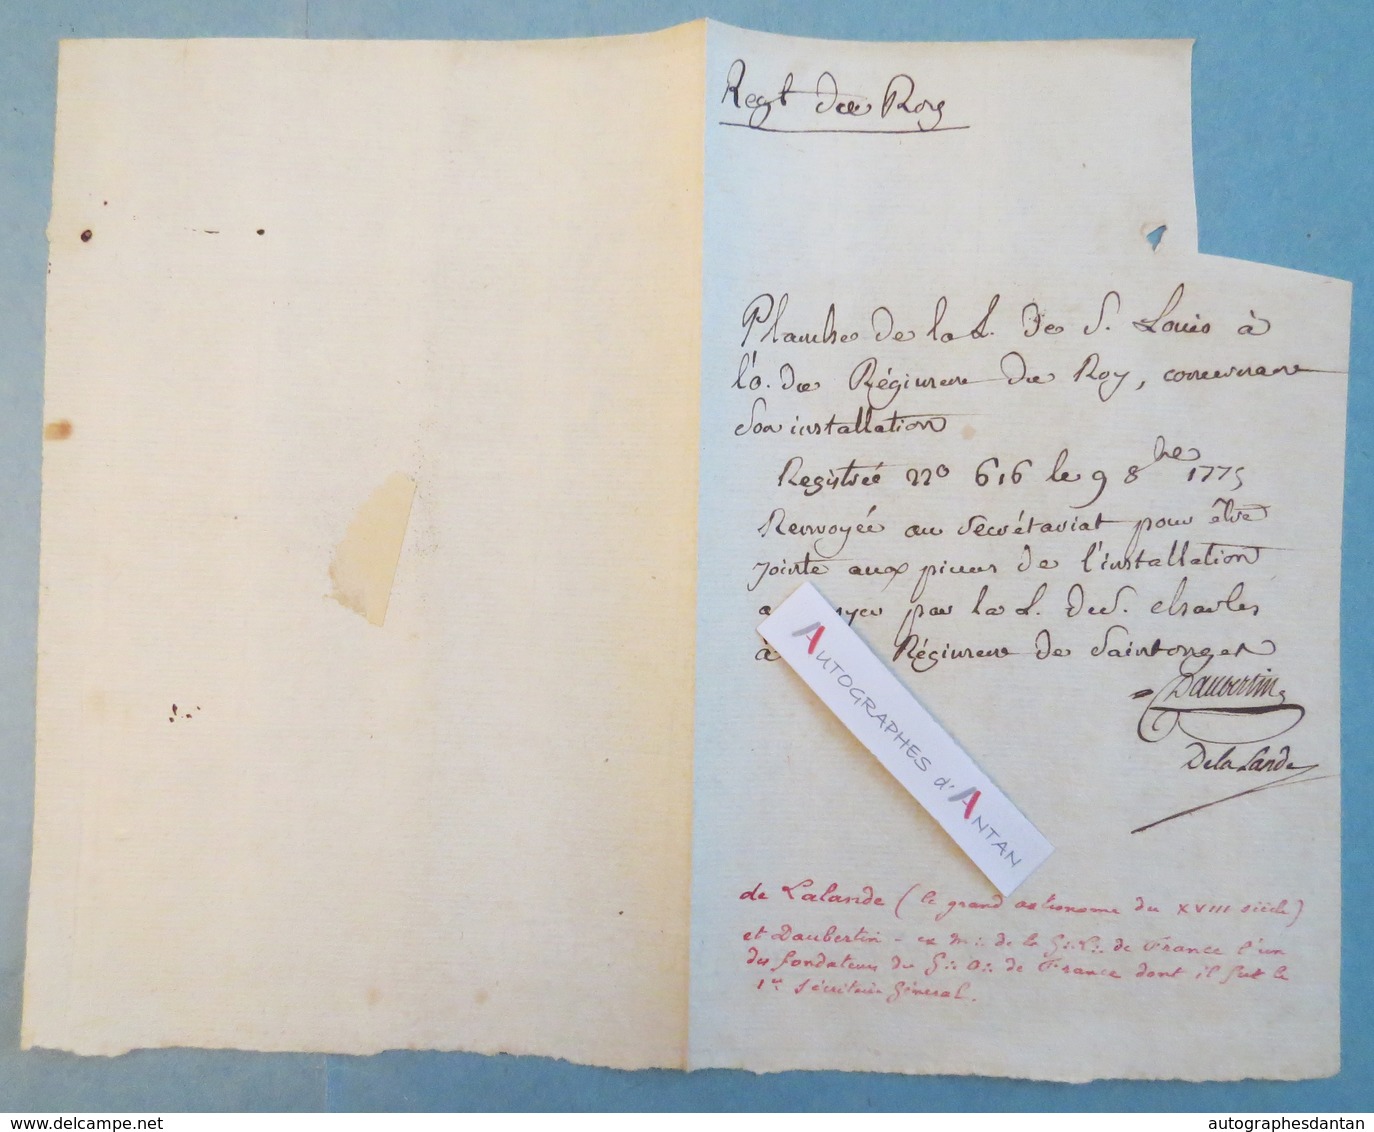 Regt du Roy
Planche de la L. de S. Louis à
l'o. du Régiment du Roy, concernant
son installation
Registrée nº 616 le 9 8bre 1775
Renvoyée au Secrétariat pour être
jointe aux pieces de l'installation
par la L. de S. Charles
à Régiment de Saintonge
Daubertin
De la Lande
AUTOGRAPHES d'ANTAN
de Lalande (le grand astronome du XVIII siècle)
et Daubertin - ex m∴ de la G∴L∴ de France l'un
des fondateurs du G∴O∴ de France dont il fut le
1er Sécrétaire Général.
autographesdantan
www.delcampe.net